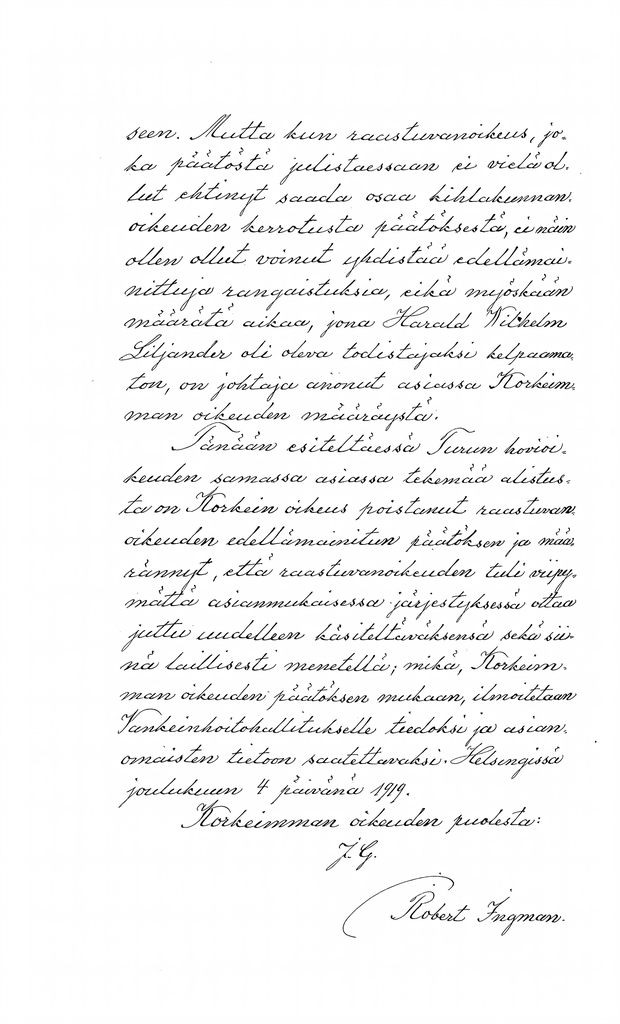 seen. Mutta kun raastuvanoikeus, jo-
ka päätöstä julistaessaan ei vielä ol-
lut ehtinyt saada osaa kihlakunnan-
oikeuden kerrotusta päätöksestä, ei näin
ollen ollut voinut yhdistää edellämai-
nittuja rangaistuksia, eikä myöskään
määrätä aikaa, jona Harald Wilhelm
Liljander oli oleva todistajaksi kelpaama-
ton, on johtaja anonut asiassa Korkeim-
man oikeuden määräystä.
Tänään esiteltäessä Turun hovioi-
keuden samassa asiassa tekemää alistus-
ta on Korkein oikeus poistanut raastuvan-
oikeuden edellämainitun päätöksen ja mää-
rännyt, että raastuvanoikeuden tuli viipy-
mättä asianmukaisessa järjestyksessä ottaa
juttu uudelleen käsiteltäväksensä sekä sii-
nä laillisesti menetellä; mikä, Korkeim-
man oikeuden päätöksen mukaan, ilmoitetaan
Vankeinhoitohallitukselle tiedoksi ja asian-
omaisten tietoon saatettavaksi. Helsingissä
joulukuun 4 päivänä 1919.
Korkeimman oikeuden puolesta:
J. G.
Robert Ingman.